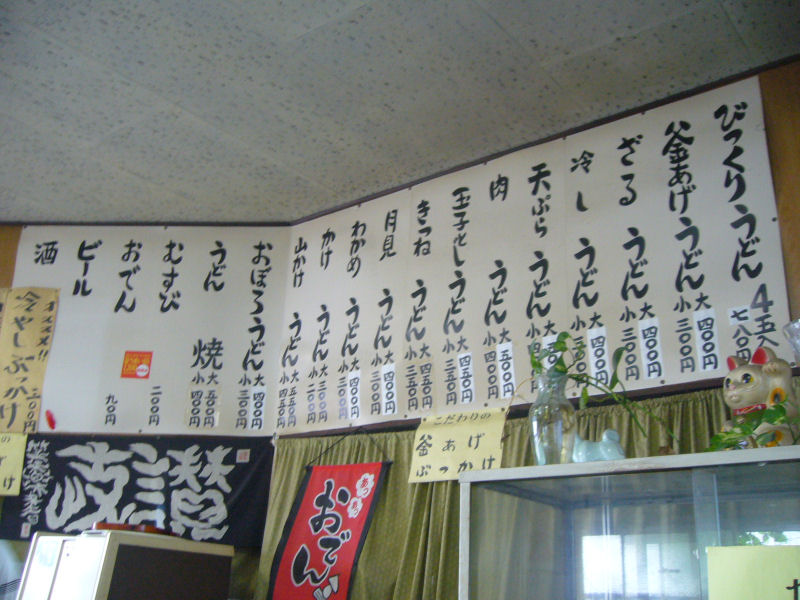 びっくりうどん 4~5人 七八〇円
釜あげうどん 大四〇〇円 小三〇〇円
ざるうどん 大四〇〇円 小三〇〇円
冷しうどん 大四〇〇円 小三〇〇円
天ぷらうどん 大500円 小四〇〇円
肉うどん 大五〇〇円 小四〇〇円
玉子とじうどん 大四五〇円 小三五〇円
きつねうどん 大四五〇円 小三五〇円
月見うどん 大四〇〇円 小三〇〇円
わかめうどん 大四〇〇円 小三〇〇円
かけうどん 大三〇〇円 小二〇〇円
山かけうどん 大五五〇円 小四五〇円
おぼろうどん 大四〇〇円 小三〇〇円
焼うどん 大五〇〇円 小四〇〇円
むすび 二〇〇円
おでん 九〇円
ビール
酒
冷やしぶっかけ
こだわりの
釜あげ
ぶっかけ
あつあつ
おでん
讃岐